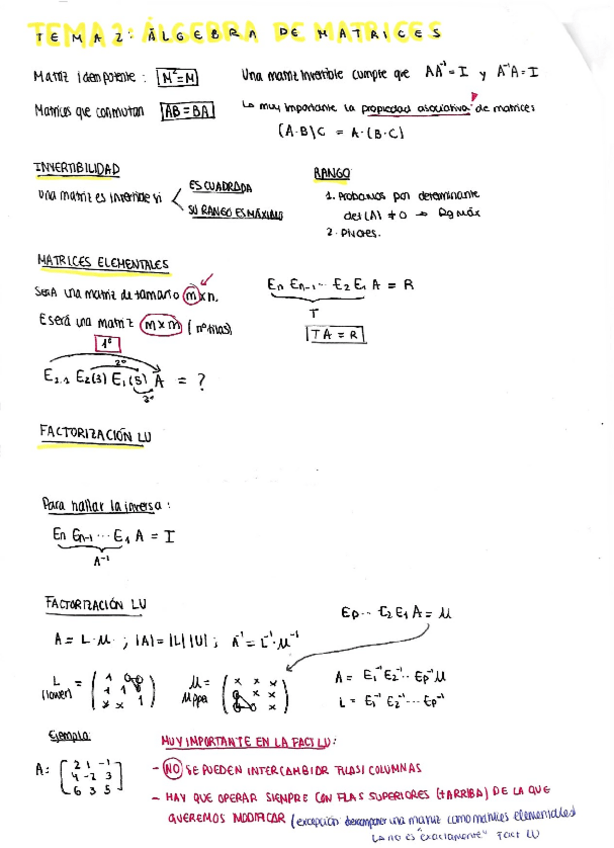 TEMA 2: ÁLGEBRA DE MATRICES
Matriz idempotente: M²=M
Una matriz invertible cumple que AA⁻¹=I y A⁻¹A=I
Matrices que conmutan AB=BA
↳ muy importante la propiedad asociativa de matrices
(A·B)C = A·(B·C)
INVERTIBILIDAD
Una matriz es invertible si
ES CUADRADA
SU RANGO ES MÁXIMO
RANGO
1. Probamos por determinante
det(A) ≠ 0 → Rg máx
2. Pivotes.
MATRICES ELEMENTALES
Sea A una matriz de tamaño m×n.
E será una matriz m×m (nº filas)
1º
2º
E₂,₁ E₂(3) E₁(5) A = ?
3º
Eₙ Eₙ₋₁ ··· E₂ E₁ A = R
T
TA = R
FACTORIZACIÓN LU
Para hallar la inversa:
Eₙ Eₙ₋₁ ··· E₁ A = I
A⁻¹
FACTORIZACIÓN LU
Ep ··· E₂E₁A = U
A = L·U ; |A| = |L||U| ; A⁻¹ = L⁻¹·U⁻¹
L (lower) =
1 0 0
1 1 0
x x 1
U = Upper
x x x
0 x x
0 0 x
A = E₁⁻¹E₂⁻¹ ··· Ep⁻¹U
L = E₁⁻¹E₂⁻¹ ··· Ep⁻¹
Ejemplo:
A =
2 1 -1
4 -2 3
6 3 5
MUY IMPORTANTE EN LA FACT LU:
- NO SE PUEDEN INTERCAMBIAR FILAS I COLUMNAS
- HAY QUE OPERAR SIEMPRE CON FLAS SUPERIORES (+ARRIBA) DE LA QUE
QUEREMOS MODIFICAR (excepción descomponer una matriz como matrices elementales)
↳ no es "exactamente" Fact LU